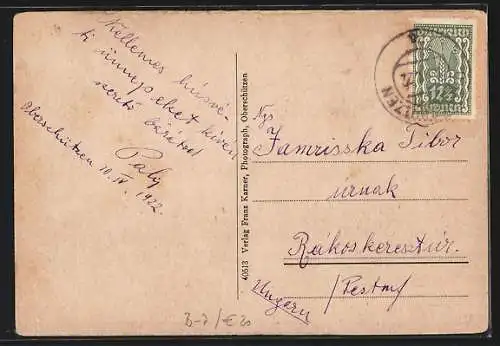 Kellemes húsvé-
ti ünnepeket kíván
szerető barátod
Pali
Oberschützen 10.IV. 1922.
40513 Verlag Franz Karner, Photograph, Oberschützen
12½
Ngs
Jamrisska Tibor
úrnak
Rákoskeresztúr.
/Pestm/
Ungarn
B-7/€20